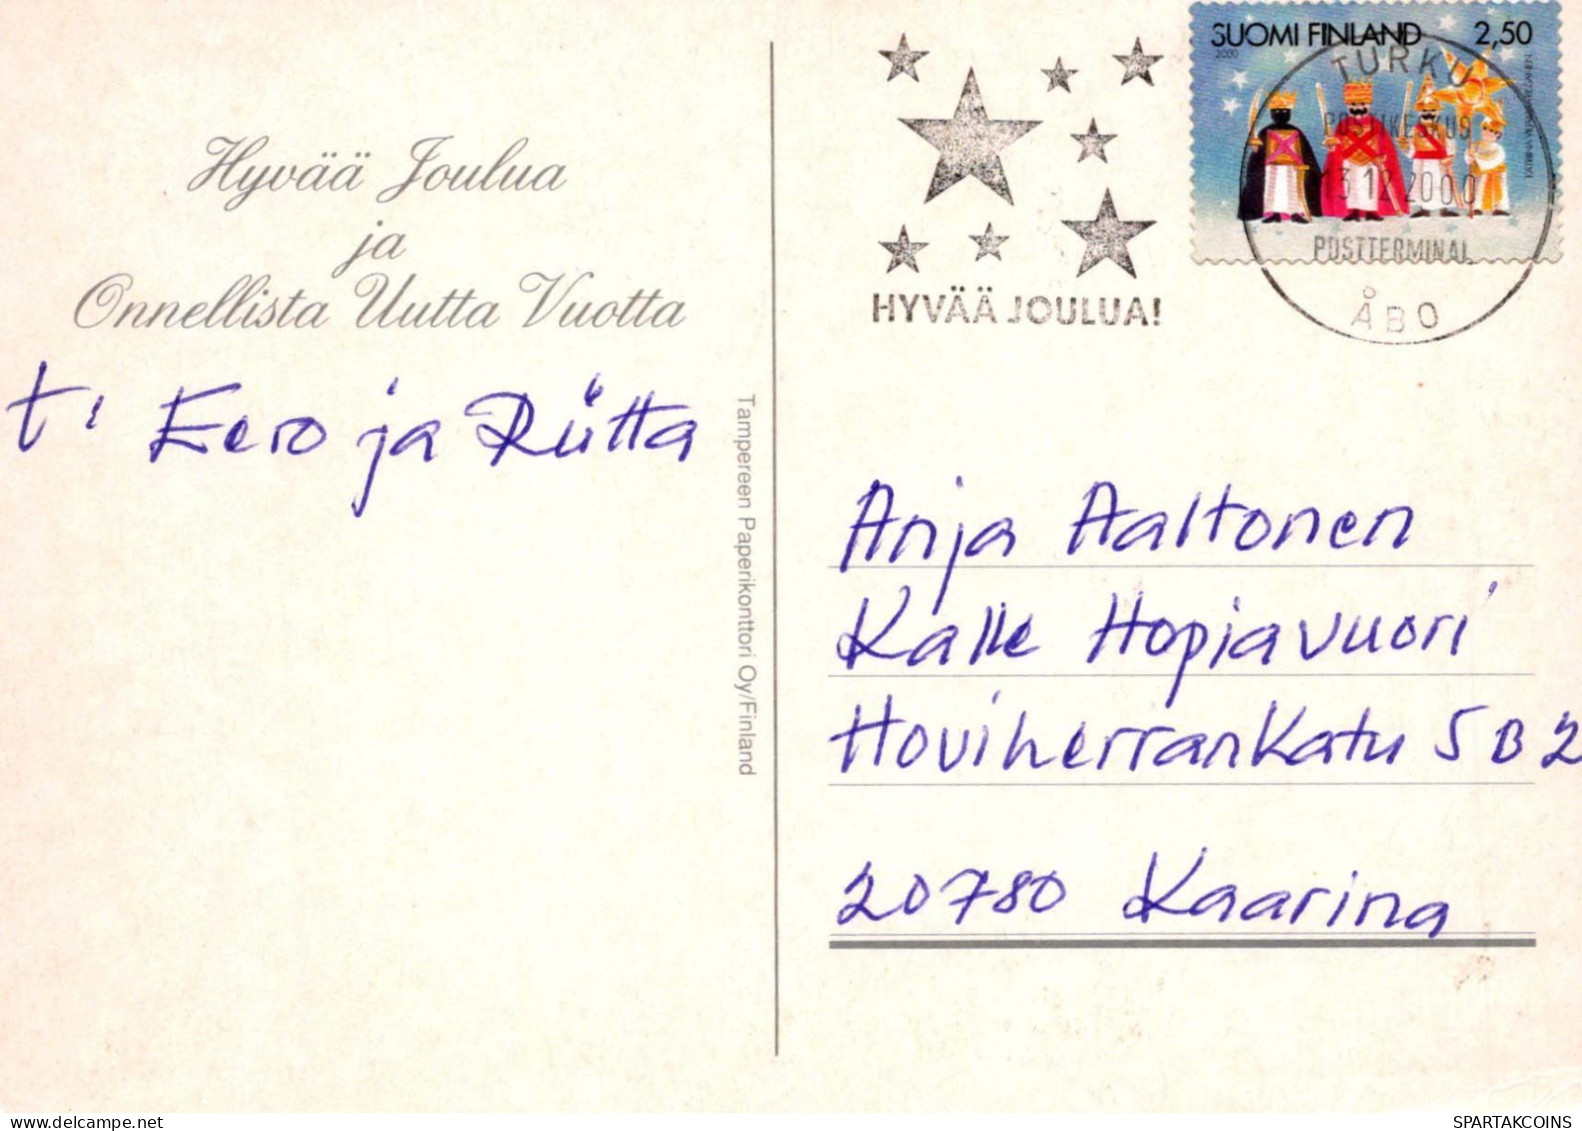 Hyvää Joulua
ja
Onnellista Uutta Vuotta
t. Eero ja Riitta
Tampereen Paperikonttori Oy/Finland
HYVÄÄ JOULUA!
SUOMI FINLAND 2,50
2000
TURKU
POSTIKESKUS
13.12.2000
POSTTERMINAL
ÅBO
Anja Aaltonen
Kalle Hopiavuori
Hoviherrankatu 5 B 2
20780 Kaarina
SPARTAKCOINS